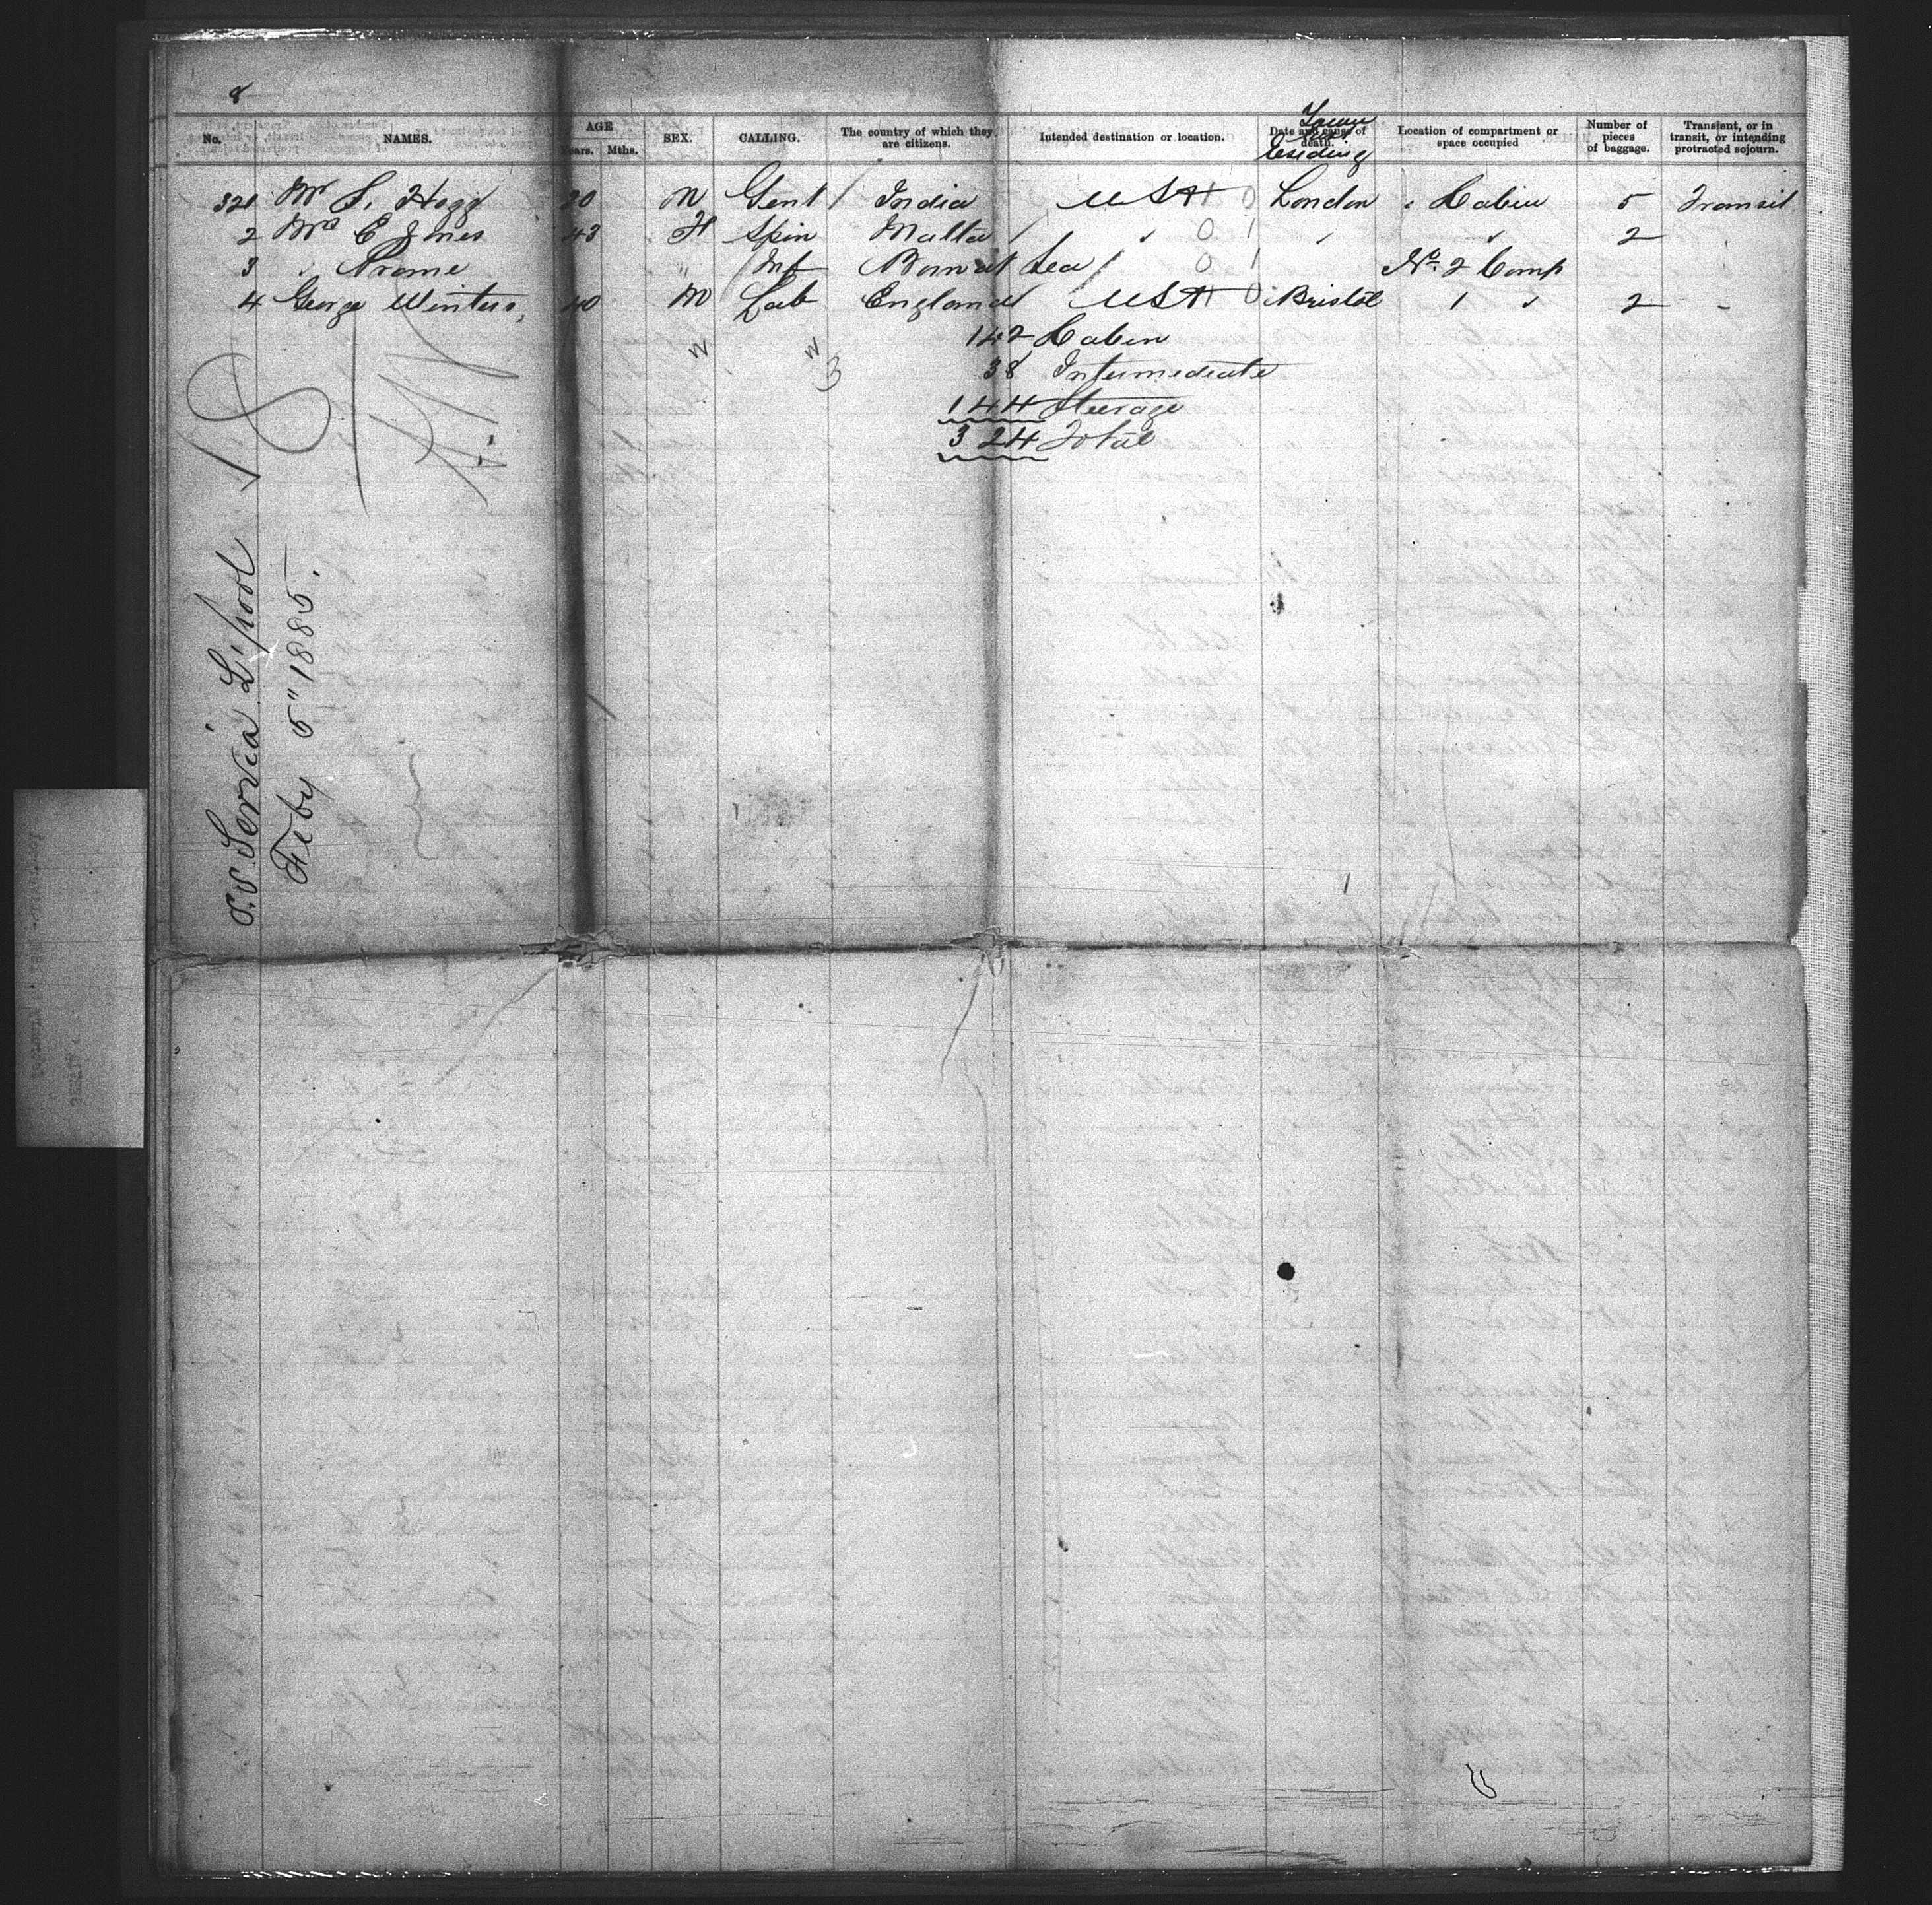 8
No. NAMES. AGE Years. Mths. SEX. CALLING. The country of which they are citizens. Intended destination or location. Date and cause of death. Residing Location of compartment or space occupied Number of pieces of baggage. Transient, or in transit, or intending protracted sojourn.
321 Mr S. Hogg 20 M Gent India USA 0 London " Cabin 5 Transit
2 Mrs E Jones 43 F Spin Malta / " 0 1 " " 2 "
3 " Frame " Inf Born at Sea / 0 1 No. 2 Comp
4 George Winters, 40 M Lab England USA 0 Bristol 1 " 2 "
142 Cabin
38 Intermediate
144 Steerage
324 Total
S.S. Servia L'pool
Feby 5" 1885.